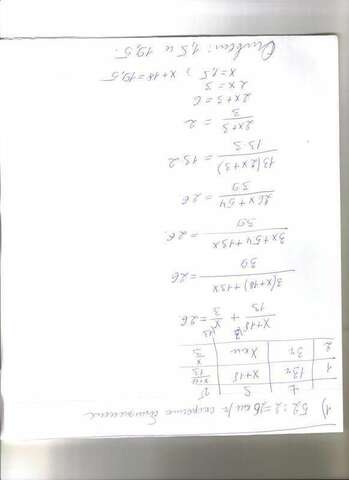 1) 52:2=26 км/ч скорость сближения
t S V
1 13ч x+18 x+18/13
2 3ч x км x/3
x+18/13 + x/3 = 26
3(x+18)+13x/39 = 26
3x+54+13x/39 = 26
26x+54/39 = 26
13(2x+3)/13·3 = 13·2
2x+3/3 = 2
2x+3=6
2x=3
x=1,5 ; x+18=19,5
Ответ: 1,5 и 19,5.